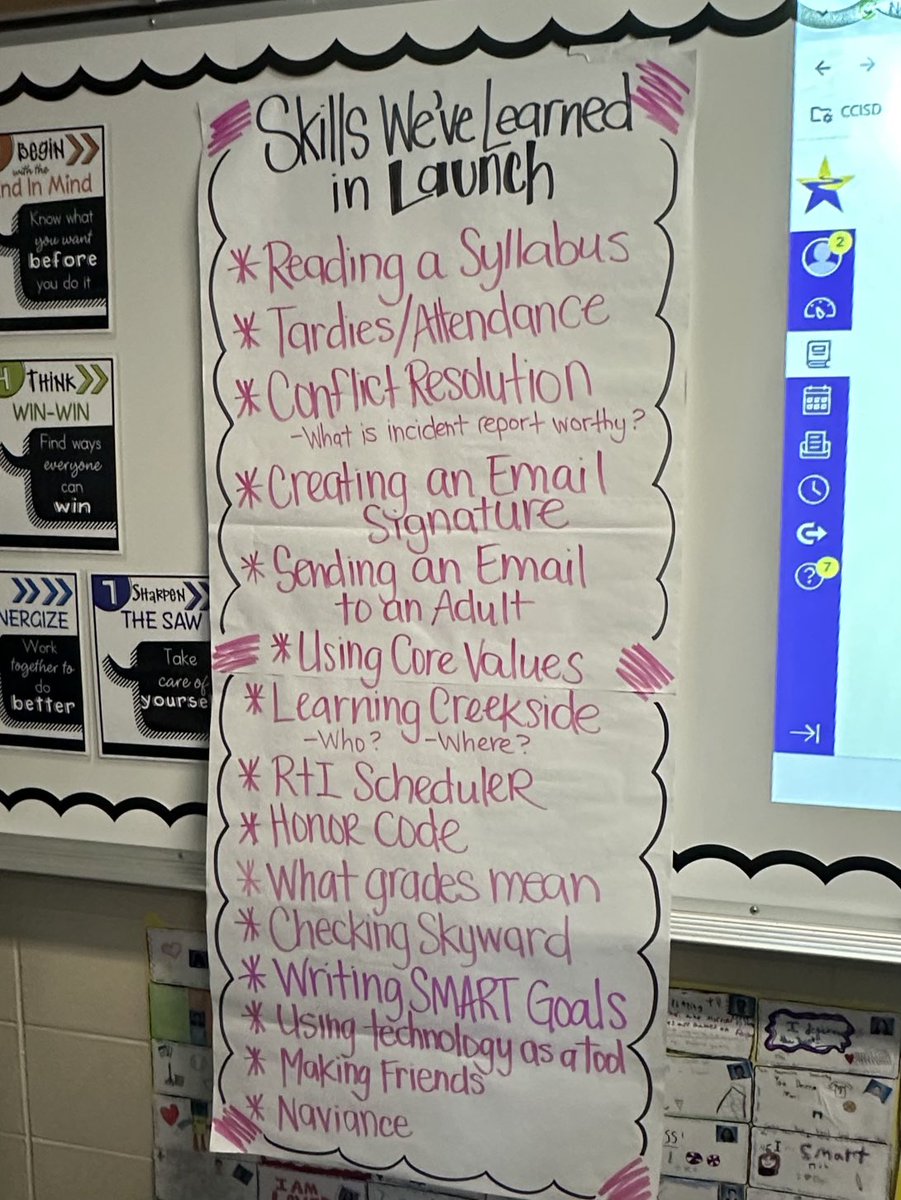 Skills We've Learned
in Launch
* Reading a Syllabus
* Tardies/Attendance
* Conflict Resolution
-What is incident report worthy?
* Creating an Email
Signature
* Sending an Email
to an Adult
* Using Core Values
* Learning Creekside
-Who? -Where?
* RtI Scheduler
* Honor Code
* What grades mean
* Checking Skyward
* Writing SMART Goals
* Using technology as a tool
* Making Friends
* Naviance
BEGIN
with the
nd In Mind
Know what
you want
before
you do it
4 THINK
WIN-WIN
Find ways
everyone
can
win
NERGIZE
Work
together to
do
better
7 SHARPEN
THE SAW
Take
care of
yourse
CCISD
2
7
I AM
Smart